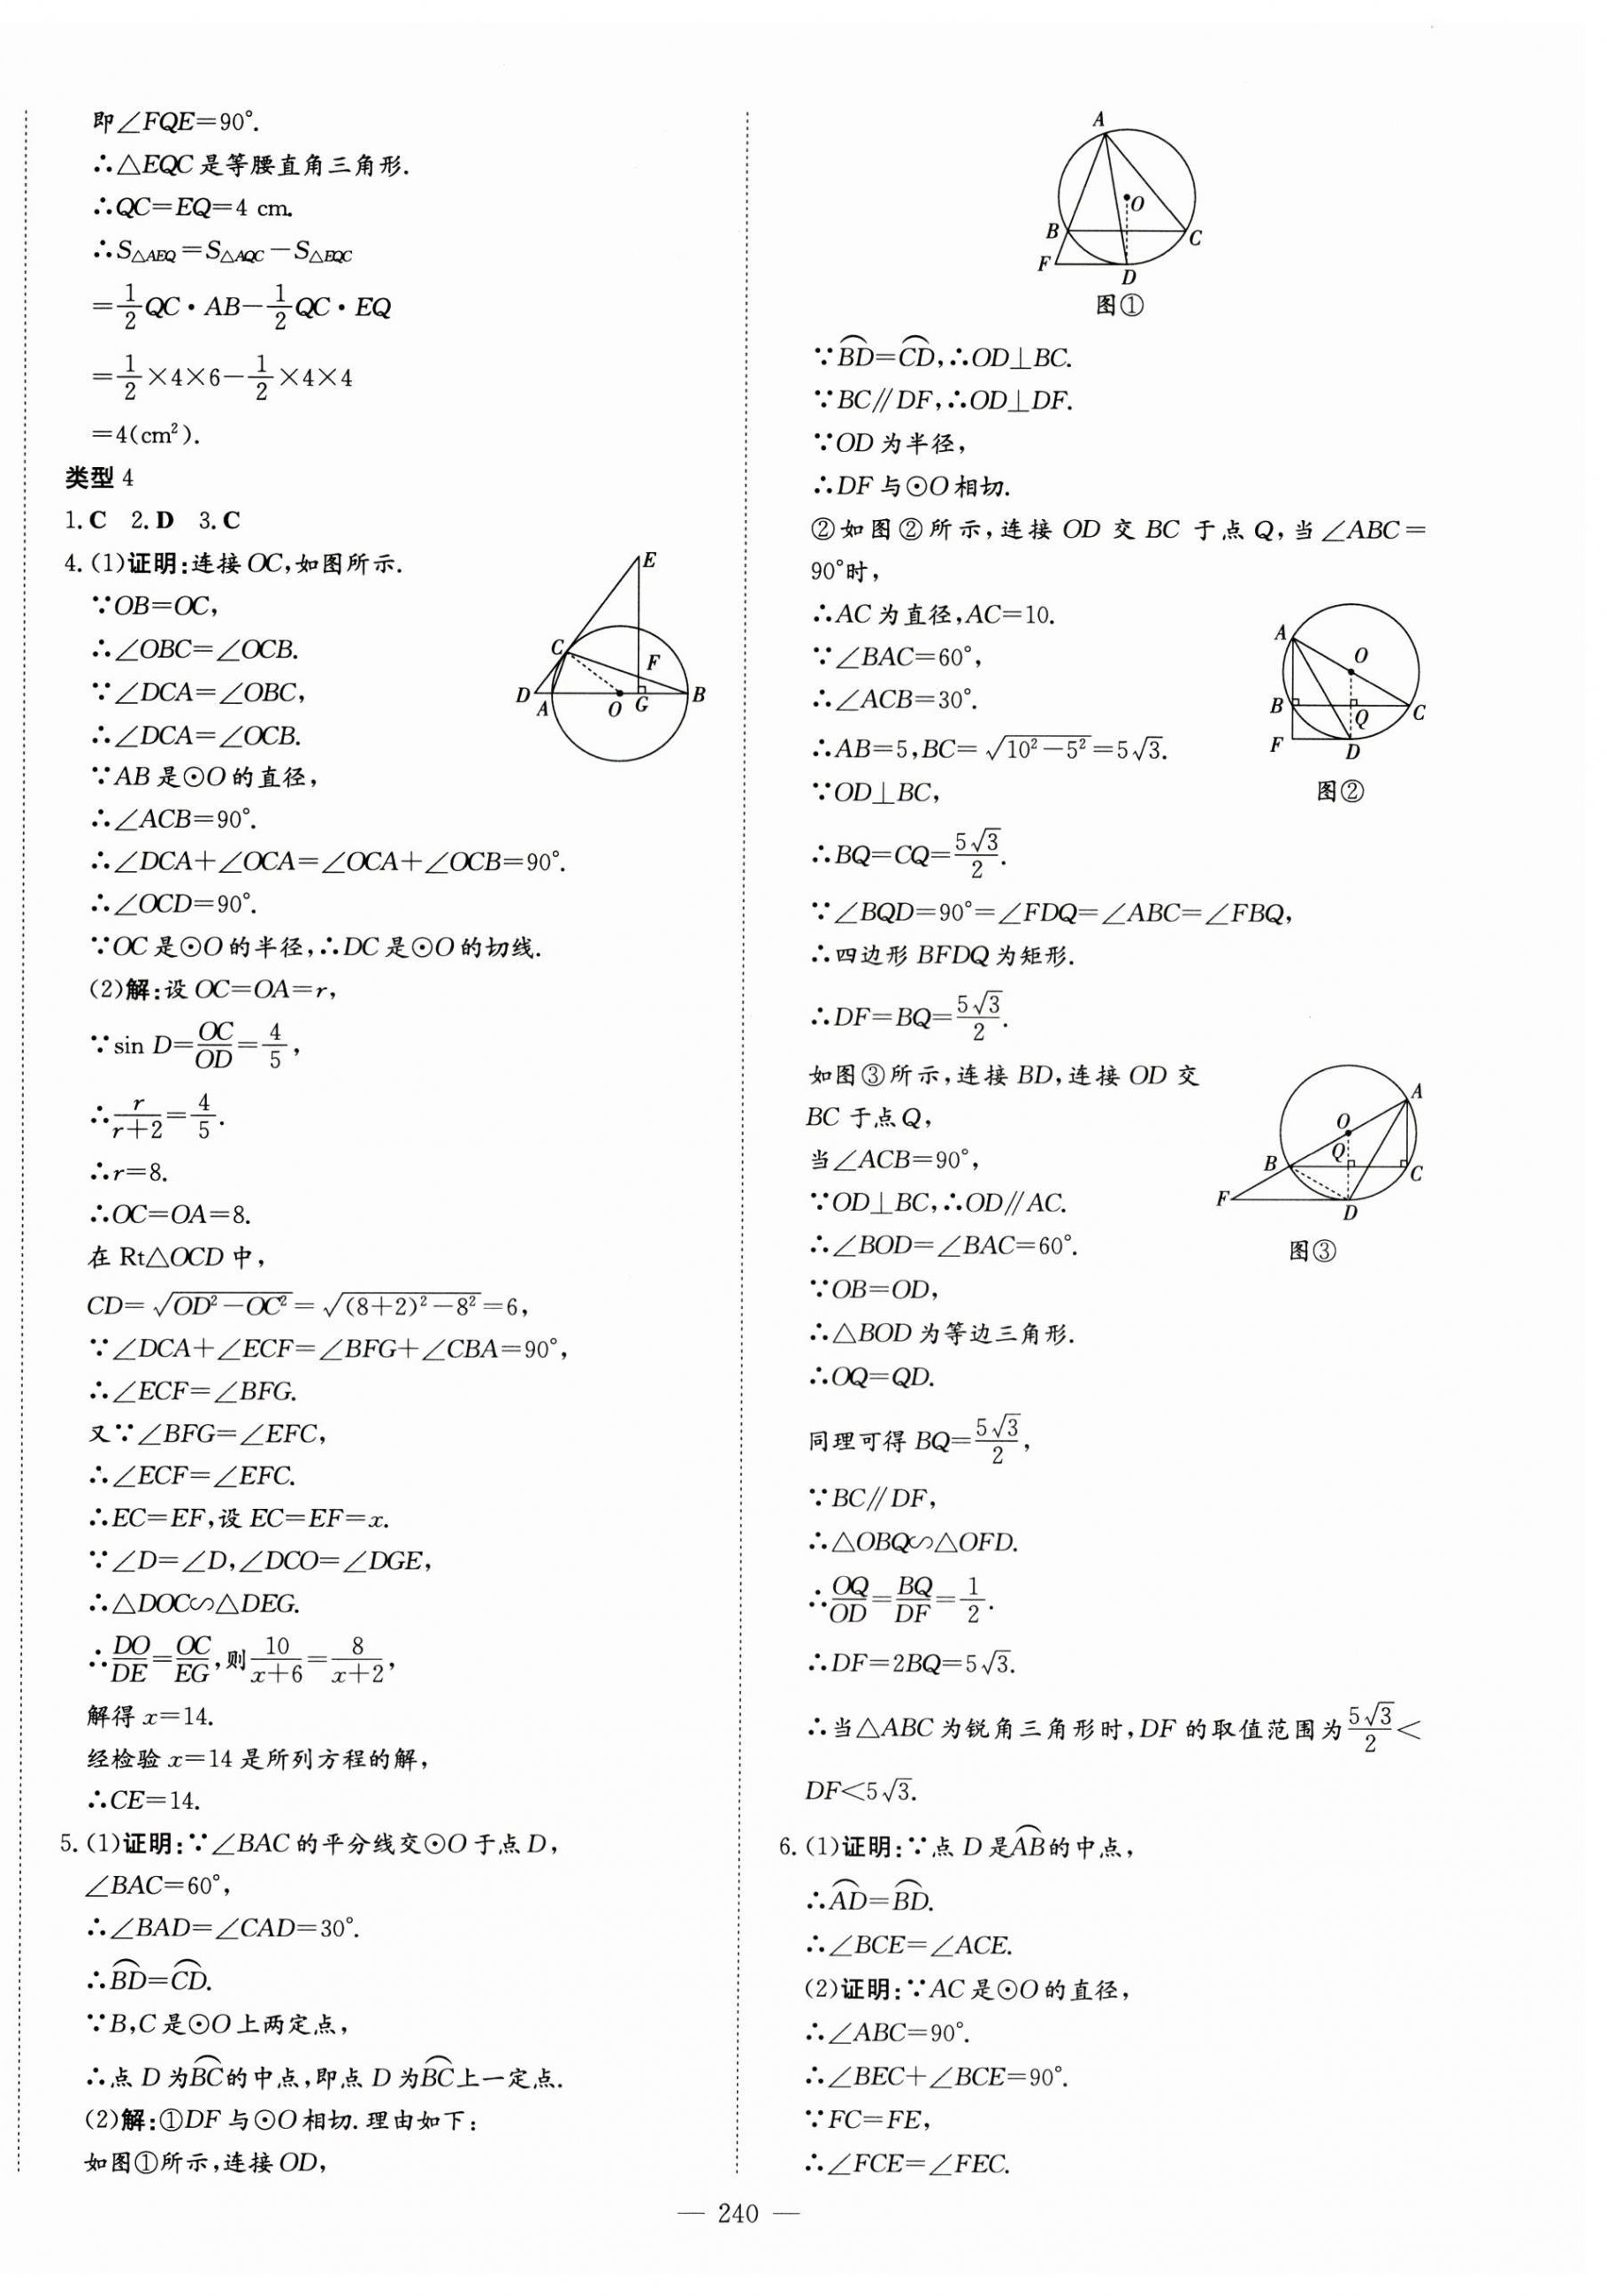 即∠FQE=90°.
∴△EQC是等腰直角三角形.
∴QC=EQ=4 cm.
∴S△AEQ=S△AQC-S△EQC
=1/2QC·AB-1/2QC·EQ
=1/2×4×6-1/2×4×4
=4(cm²).
类型4
1.C 2.D 3.C
4.(1)证明:连接OC,如图所示.
∵OB=OC,
∴∠OBC=∠OCB.
∵∠DCA=∠OBC,
∴∠DCA=∠OCB.
∵AB是⊙O的直径,
∴∠ACB=90°.
∴∠DCA+∠OCA=∠OCA+∠OCB=90°.
∴∠OCD=90°.
∵OC是⊙O的半径,∴DC是⊙O的切线.
(2)解:设OC=OA=r,
∵sin D=OC/OD=4/5,
∴r/(r+2)=4/5.
∴r=8.
∴OC=OA=8.
在Rt△OCD中,
CD=√(OD²-OC²)=√((8+2)²-8²)=6,
∵∠DCA+∠ECF=∠BFG+∠CBA=90°,
∴∠ECF=∠BFG.
又∵∠BFG=∠EFC,
∴∠ECF=∠EFC.
∴EC=EF,设EC=EF=x.
∵∠D=∠D,∠DCO=∠DGE,
∴△DOC∽△DEG.
∴DO/DE=OC/EG,则10/(x+6)=8/(x+2),
解得x=14.
经检验x=14是所列方程的解,
∴CE=14.
5.(1)证明:∵∠BAC的平分线交⊙O于点D,
∠BAC=60°,
∴∠BAD=∠CAD=30°.
∴⌒BD=⌒CD.
∵B,C是⊙O上两定点,
∴点D为⌒BC的中点,即点D为⌒BC上一定点.
(2)解:①DF与⊙O相切.理由如下:
如图①所示,连接OD,
E
C
F
D
A
O
G
B
A
O
B
C
F
D
图①
∵⌒BD=⌒CD,∴OD⊥BC.
∵BC∥DF,∴OD⊥DF.
∵OD为半径,
∴DF与⊙O相切.
②如图②所示,连接OD交BC于点Q,当∠ABC=
90°时,
∴AC为直径,AC=10.
∵∠BAC=60°,
∴∠ACB=30°.
∴AB=5,BC=√(10²-5²)=5√3.
∵OD⊥BC,
∴BQ=CQ=5√3/2.
∵∠BQD=90°=∠FDQ=∠ABC=∠FBQ,
∴四边形BFDQ为矩形.
∴DF=BQ=5√3/2.
A
O
B
Q
C
F
D
图②
如图③所示,连接BD,连接OD交
BC于点Q,
当∠ACB=90°,
∵OD⊥BC,∴OD∥AC.
∴∠BOD=∠BAC=60°.
∵OB=OD,
∴△BOD为等边三角形.
∴OQ=QD.
同理可得BQ=5√3/2,
∵BC∥DF,
∴△OBQ∽△OFD.
∴OQ/OD=BQ/DF=1/2.
∴DF=2BQ=5√3.
∴当△ABC为锐角三角形时,DF的取值范围为5√3/2<
DF<5√3.
A
O
Q
B
C
F
D
图③
6.(1)证明:∵点D是⌒AB的中点,
∴⌒AD=⌒BD.
∴∠BCE=∠ACE.
(2)证明:∵AC是⊙O的直径,
∴∠ABC=90°.
∴∠BEC+∠BCE=90°.
∵FC=FE,
∴∠FCE=∠FEC.
— 240 —